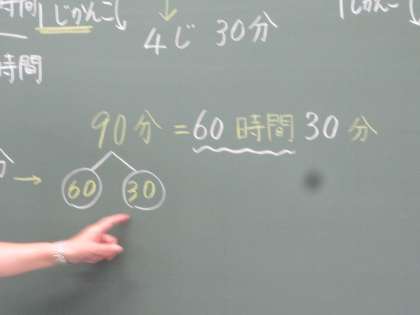 時間
じかんこ
じかんこ
4じ 30分
時間
90分 = 60 時間 30 分
分 → 60 30